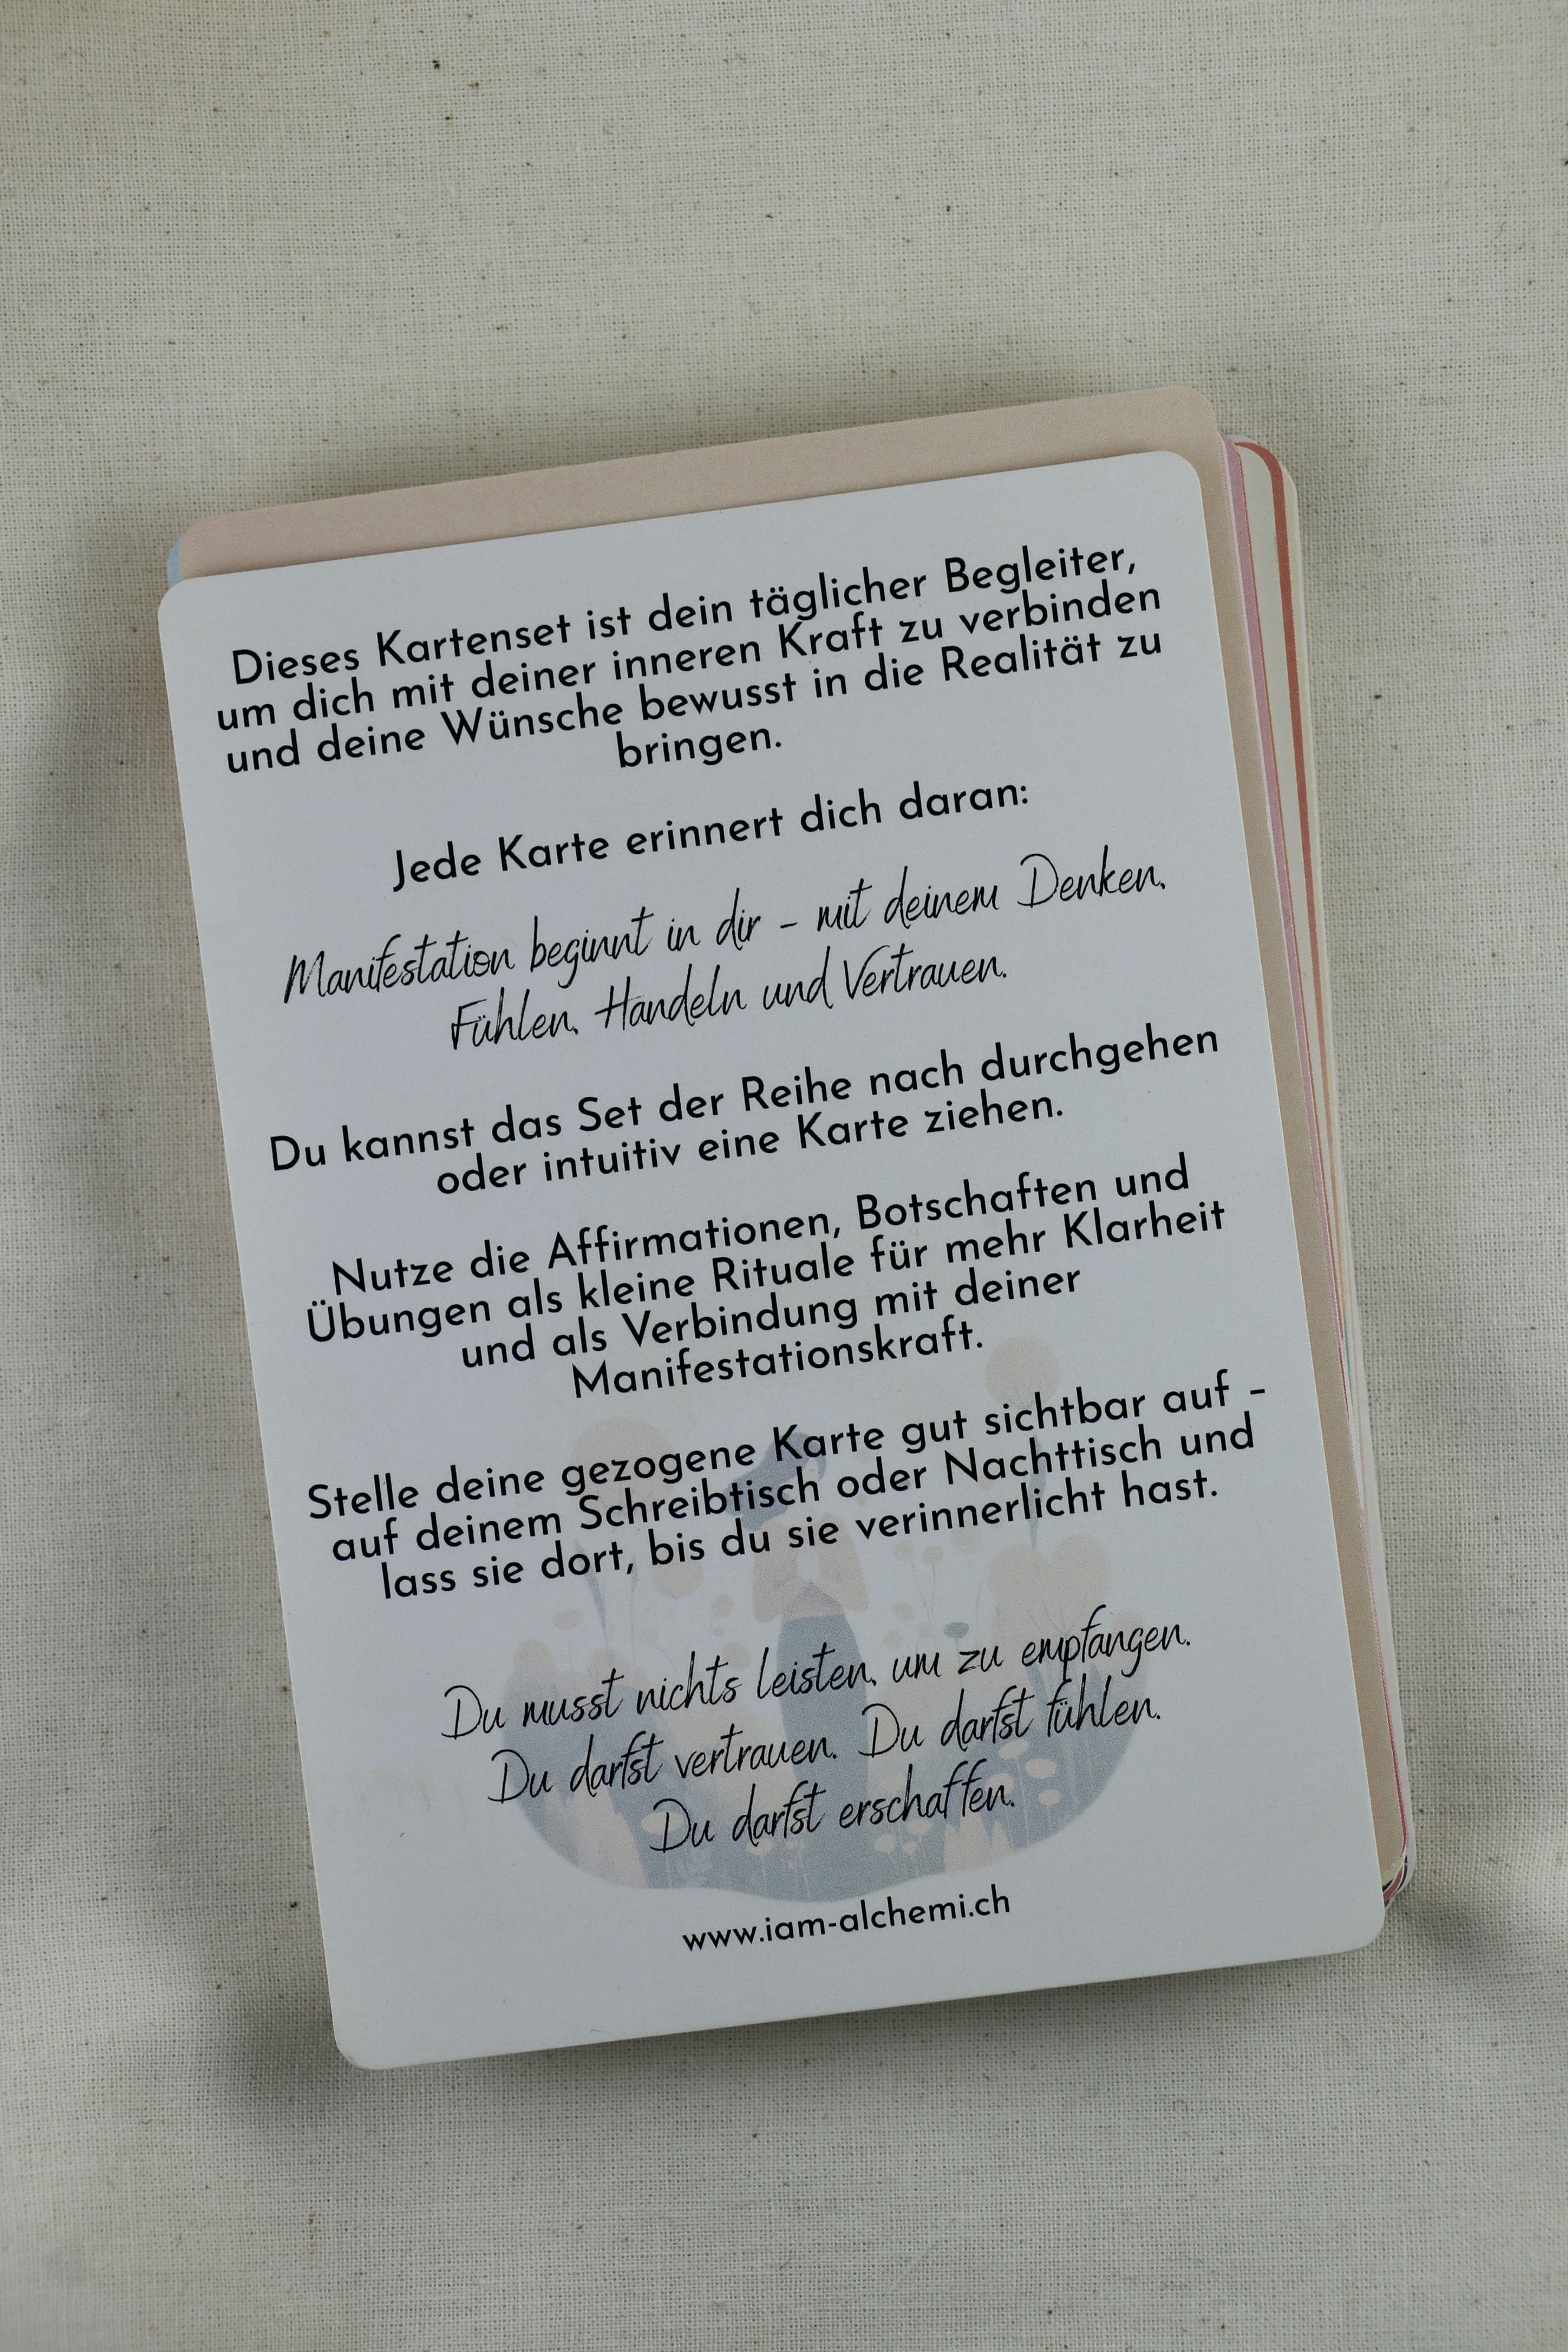 Dieses Kartenset ist dein täglicher Begleiter,
um dich mit deiner inneren Kraft zu verbinden
und deine Wünsche bewusst in die Realität zu
bringen.
Jede Karte erinnert dich daran:
Manifestation beginnt in dir – mit deinem Denken,
Fühlen, Handeln und Vertrauen.
Du kannst das Set der Reihe nach durchgehen
oder intuitiv eine Karte ziehen.
Nutze die Affirmationen, Botschaften und
Übungen als kleine Rituale für mehr Klarheit
und als Verbindung mit deiner
Manifestationskraft.
Stelle deine gezogene Karte gut sichtbar auf –
auf deinem Schreibtisch oder Nachttisch und
lass sie dort, bis du sie verinnerlicht hast.
Du musst nichts leisten, um zu empfangen.
Du darfst vertrauen. Du darfst fühlen.
Du darfst erschaffen.
www.iam-alchemi.ch